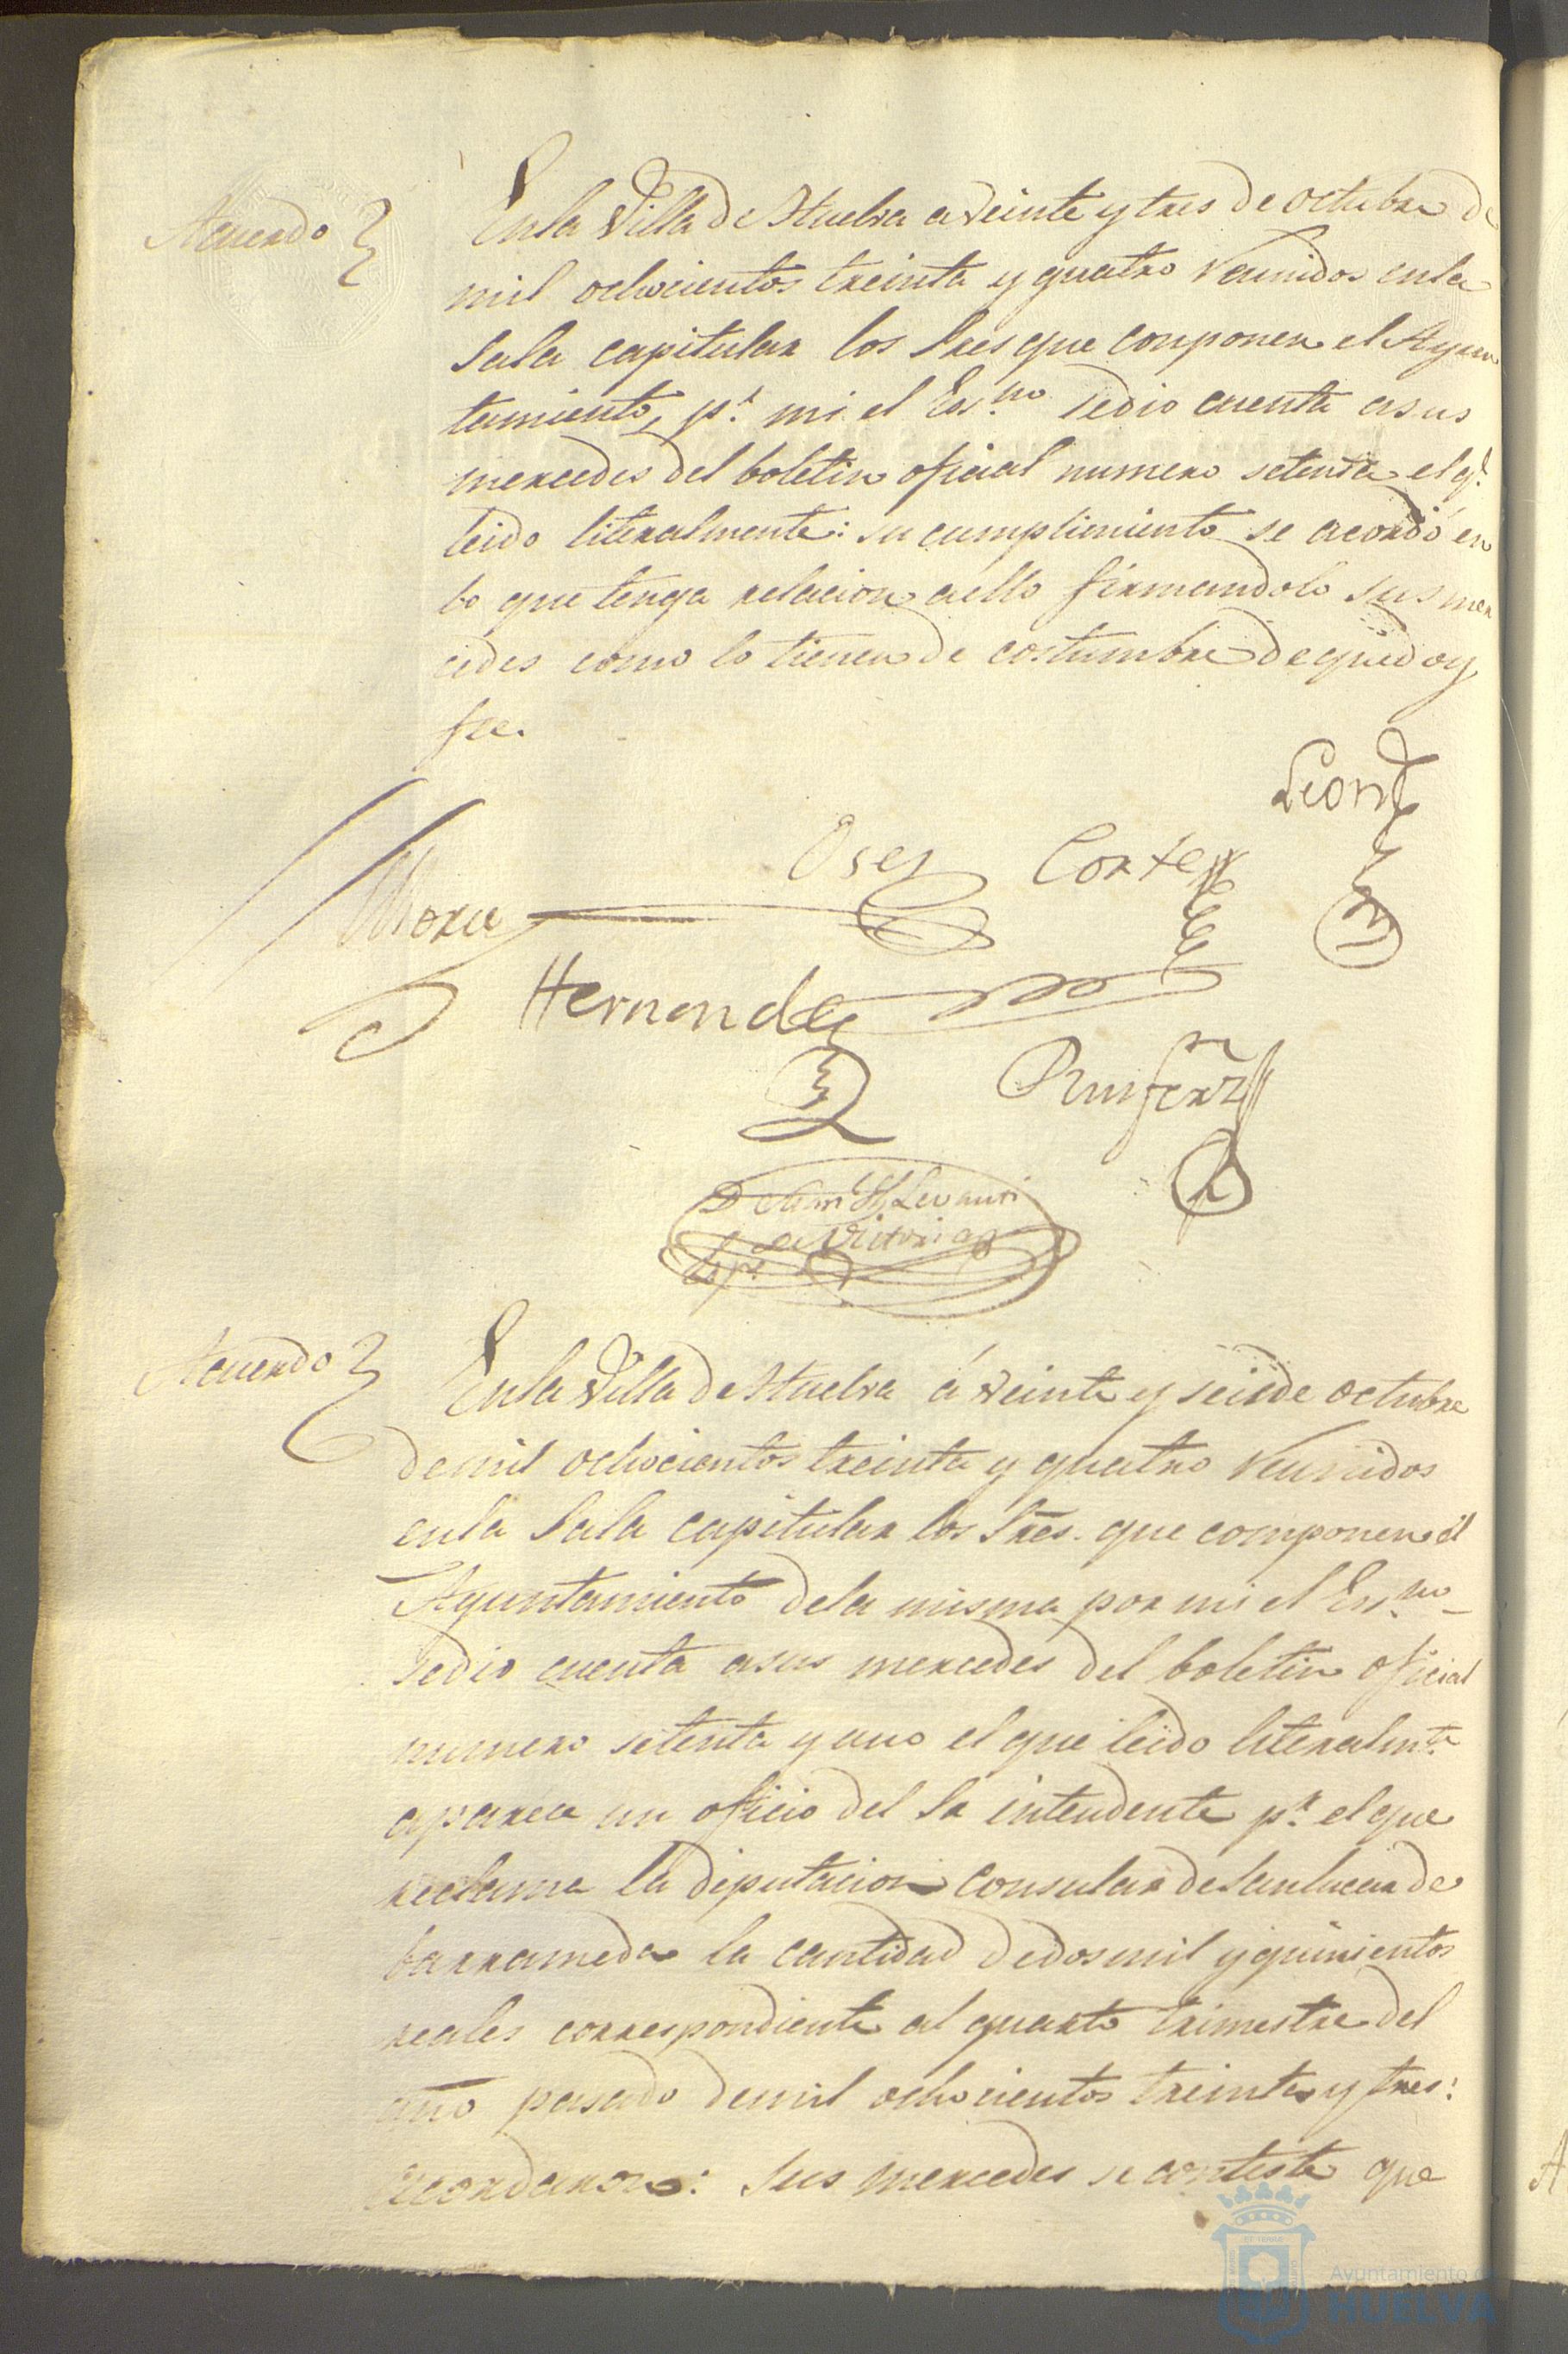 Acuerdo
En la Villa de Huelva a veinte y tres de octubre de
mil ochocientos treinta y quatro reunidos en la
Sala capitular los Sres que conponen el Ayun
tamiento, pr. mi el Essno. se dio cuenta a sus
mercedes del boletin oficial numero setenta el qe.
leido literalmente: su cumplimiento se acordó en
lo que tenga relacion a ello firmandolo sus mer
cedes como lo tienen de costumbre de que doy
fee.
Leon
Oses Cortes
Mora
Hernandez
Ruifernz
Victoria
Acuerdo
En la Villa de Huelva á veinte y seis de octubre
de mil ochocientos treinta y quatro reunidos
en la Sala capitular los Sres. que componen el
Ayuntamiento de la misma por mi el Essno.
se dio cuenta a sus mercedes del boletin oficial
numero setenta y uno el que leido literalmte.
aparece un oficio del Sr intendente pr. el que
reclama la diputacion consular de Sanlucar de
barrameda la cantidad de dos mil y quinientos
reales correspondiente al quarto trimestre del
año pasado de mil ochocientos treinta y tres:
acordaron: Sus mercedes se conteste que
Ayuntamiento de
HUELVA